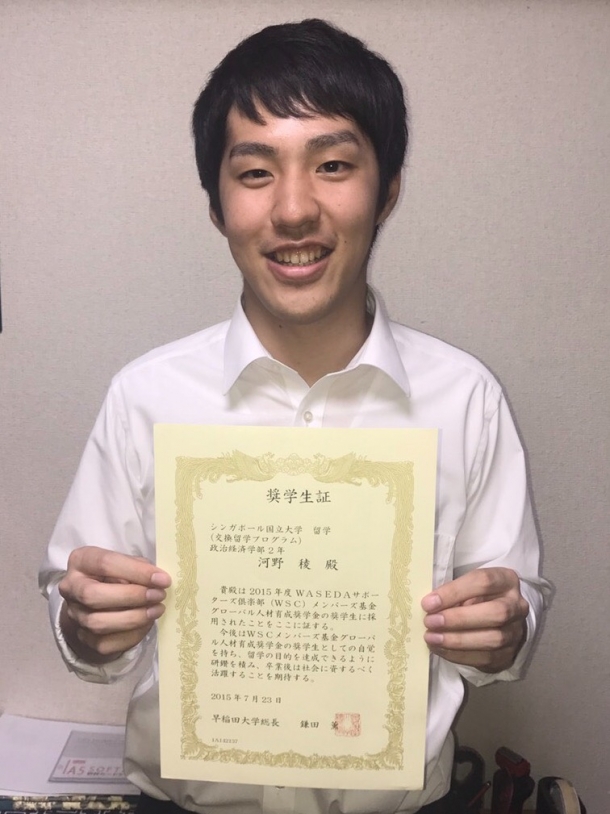 奨学生証
シンガポール国立大学　留学
(交換留学プログラム)
政治経済学部２年
河野　稜　殿
貴殿は２０１５年度ＷＡＳＥＤＡサポー
ターズ倶楽部（ＷＳＣ）メンバーズ基金
グローバル人材育成奨学金の奨学生に採
用されたことをここに証する。
今後はＷＳＣメンバーズ基金グローバ
ル人材育成奨学金の奨学生としての自覚
を持ち、留学の目的を達成できるように
研鑽を積み、卒業後は社会に資するべく
活躍することを期待する。
２０１５年７月２３日
早稲田大学総長　鎌田　薫